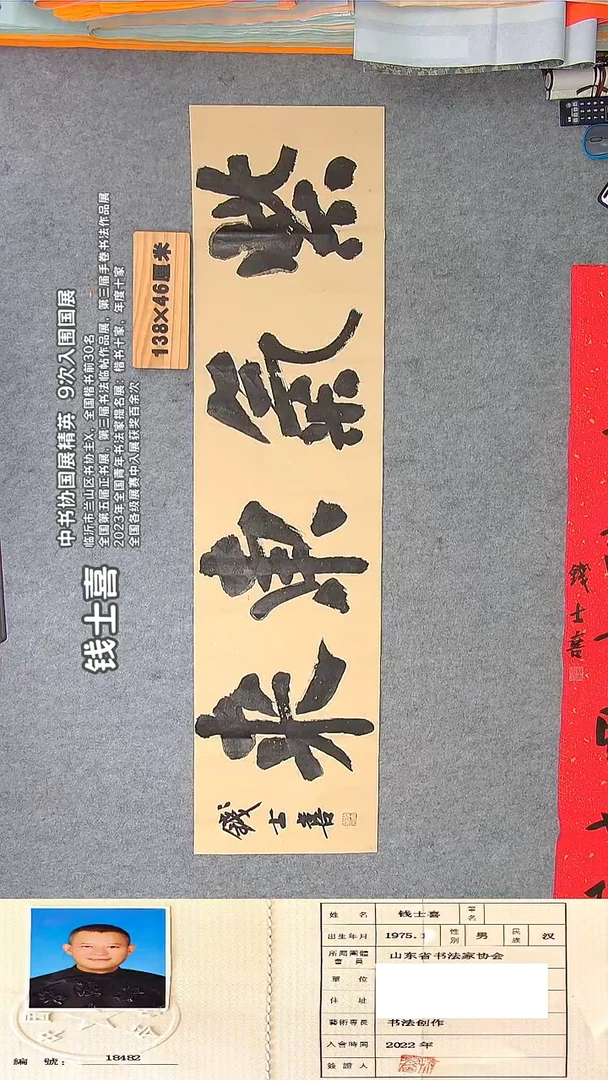 紫氣東來
錢士喜
138×46厘米
中书协国展精英 9次入围国展
临沂市兰山区书协主X,全国楷书前30名
全国第五届正书展,第三届书法临帖作品展,第三届手卷书法作品展
2023年全国青年书法家提名展:楷书十家,年度十家
全国各级展赛中入展获奖百余次
钱士喜
錢士喜
姓名 钱士喜 筆名
出生年月 1975.1 性別 男 民族 汉
所屬團體會員 山东省书法家协会
單位
住址
藝術專長 书法创作
入會時間 2022年
簽證人
編號: 18482